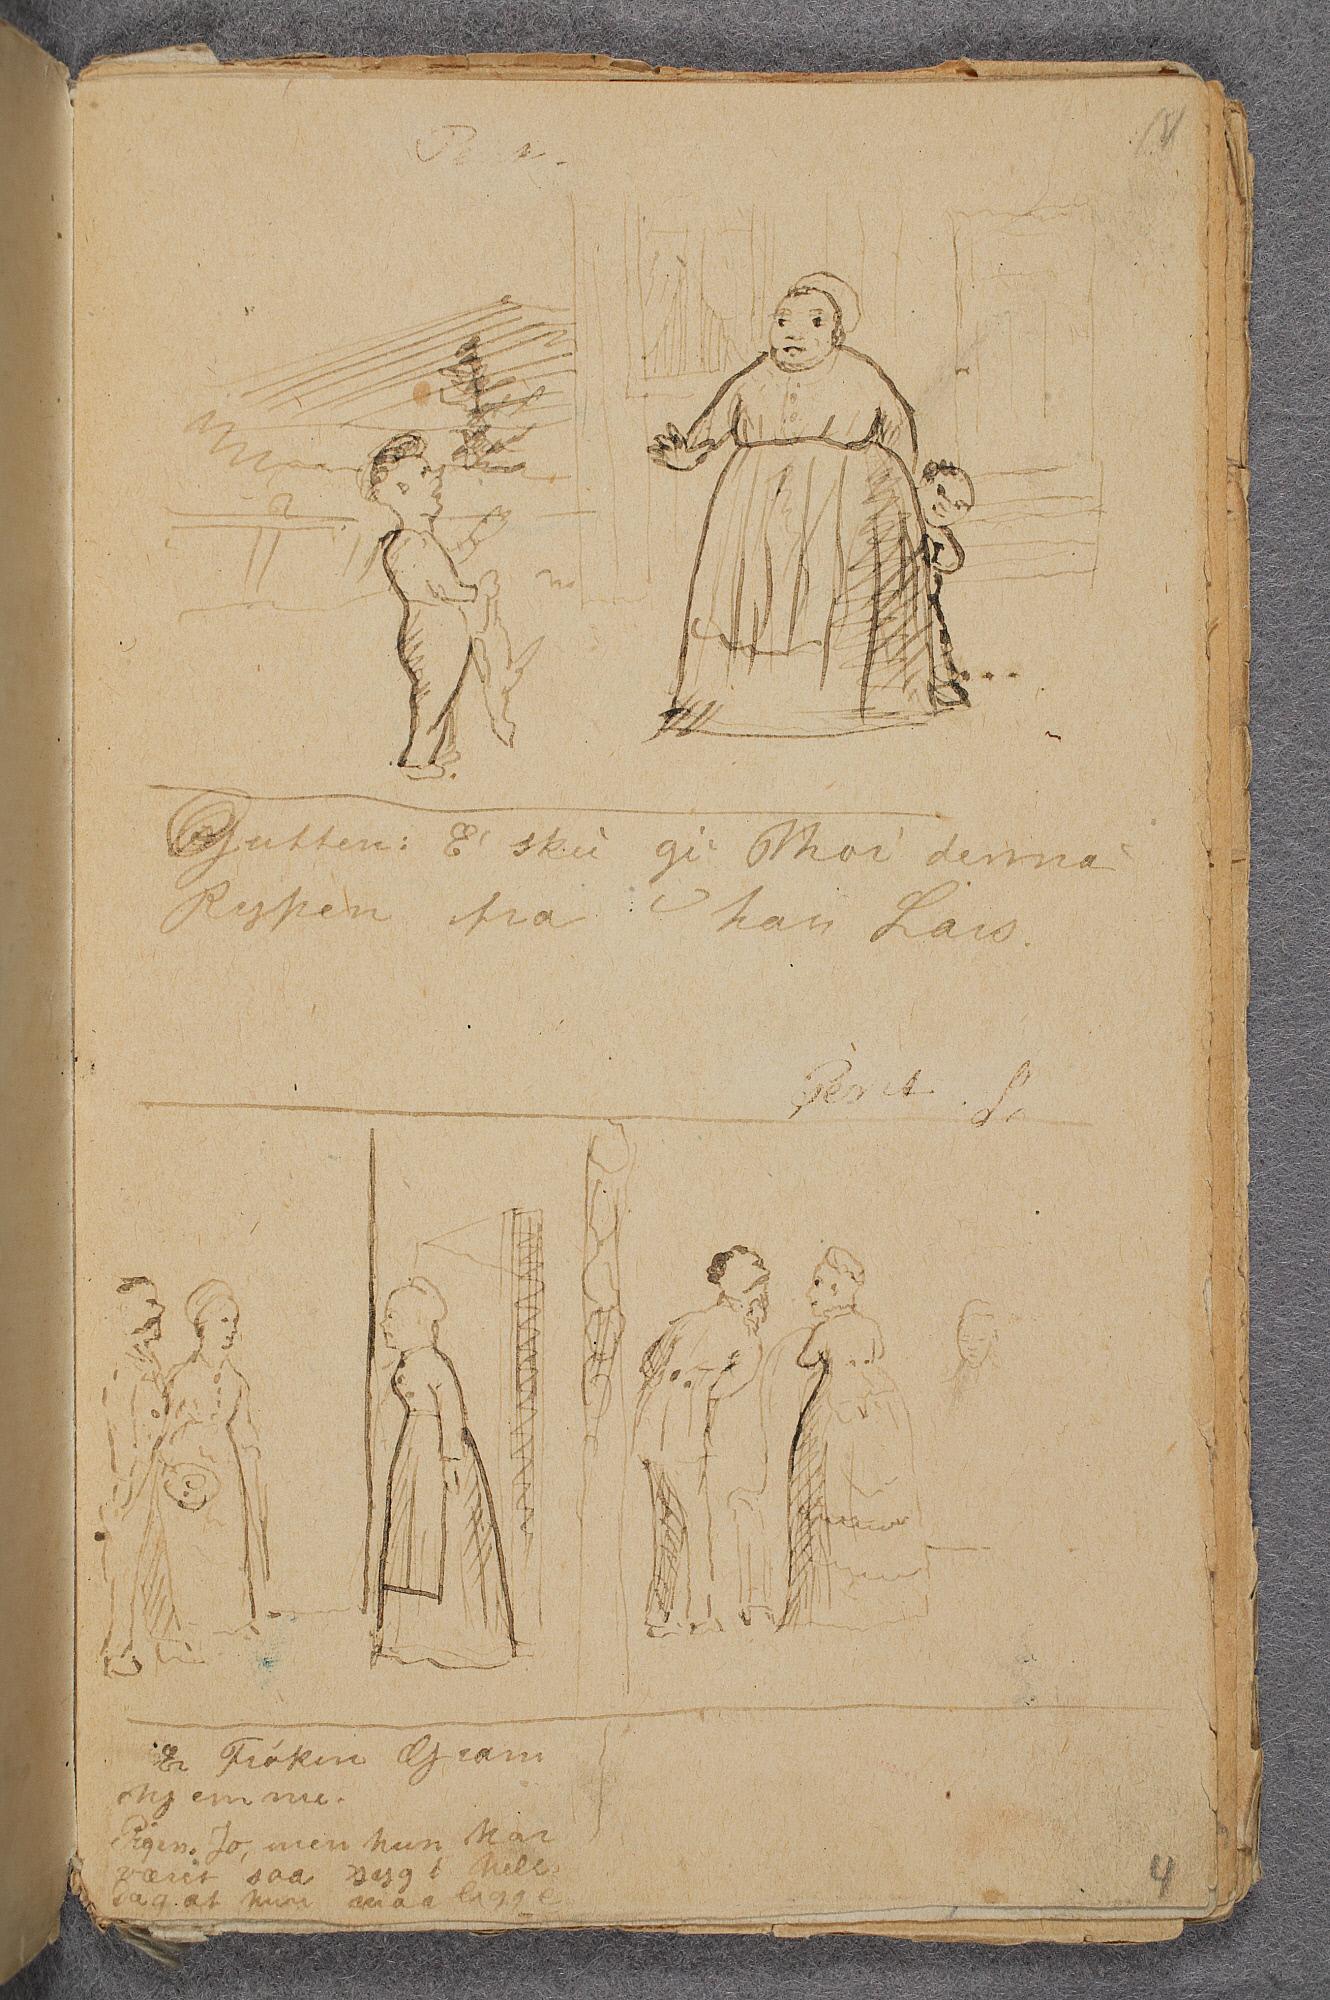 Gutten: E' sku gi' Mor denna
Rypen fra han Lars.
Er Frøken Gram
hjemme.
Pigen. Jo, men hun har
været saa sygt hele
dag at hun maa ligge
4